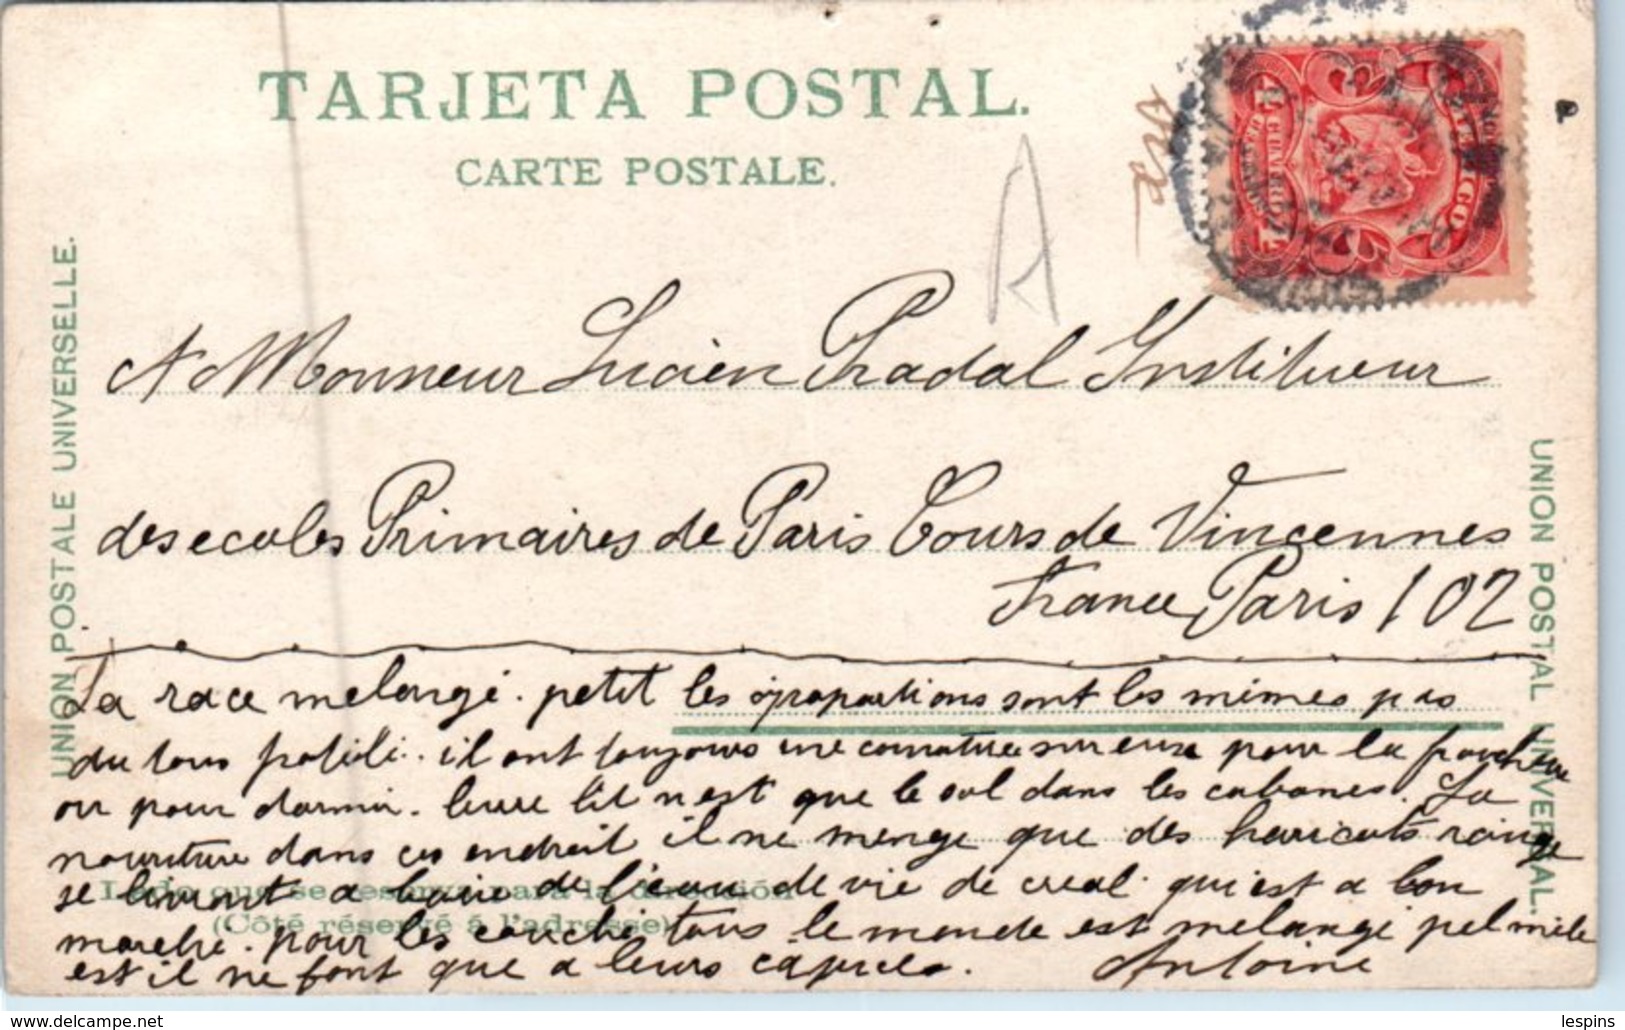 TARJETA POSTAL.
CARTE POSTALE.
UNION POSTALE UNIVERSELLE.
UNION POSTAL UNIVERSAL.
MEXICO
4 CENTAVOS 4
A
A Monneur Lucien Pradal Instituteur
des ecoles Primaires de Paris Cours de Vincennes
France Paris 102
La race melangé. petit les proportions sont les mêmes pas
du tous . il ont toujours une sur eux pour la
ou pour dormir. leure lit n'est que le sol dans les cabanes. La
nouriture dans ces endroit il ne menge que des haricots rouge
se livront a boire de l'eau de vie de qui est a bon
Lado que se reserva para la dirección
(Côté réservé á l'adresse)
marché. pour les couché tous le monde est melangé pel mèle
est il ne font que a leurs caprices. Antoine
lespins
www.delcampe.net